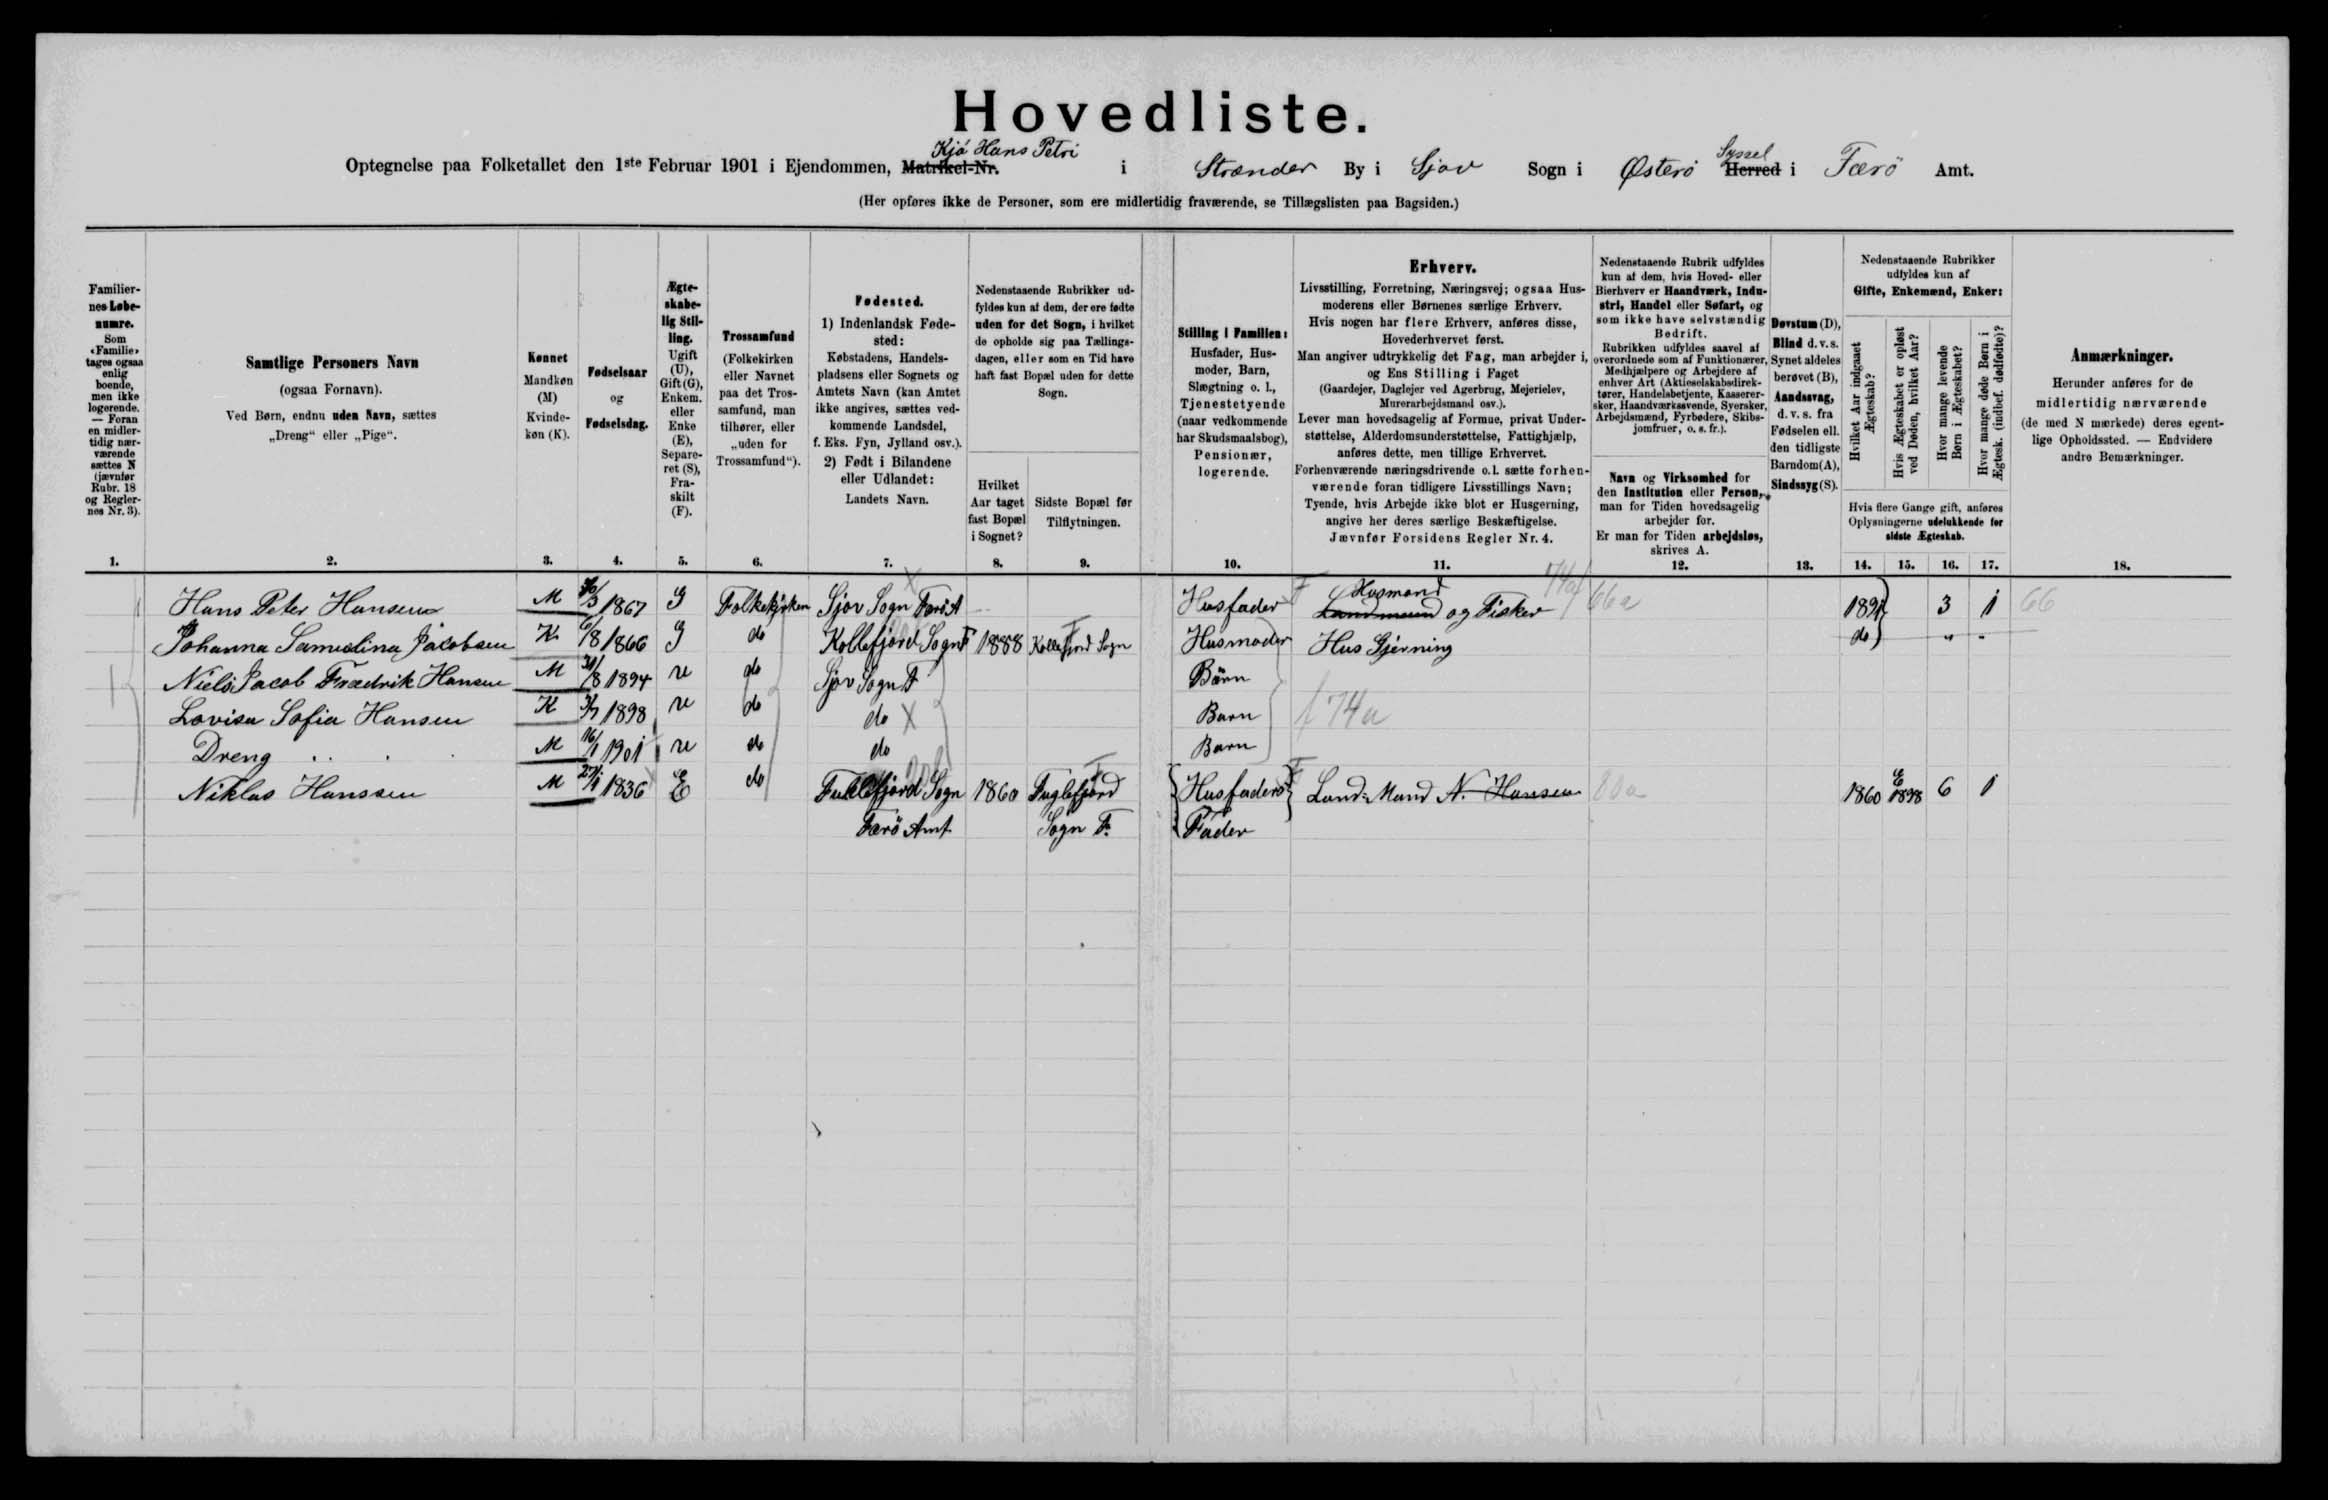 Hovedliste.
Kjá Hans Petri
Optegnelse paa Folketallet den 1ste Februar 1901 i Ejendommen, Matrikel-Nr. i Strænder By i Sjov Sogn i Østerö Herred i Færö Amt.
Syssel
(Her opføres ikke de Personer, som ere midlertidig fraværende, se Tillægslisten paa Bagsiden.)
Familier-
nes Løbe-
numre.
Som
«Familie»
tages ogsaa
enlig
boende,
men ikke
logerende.
— Foran
en midler-
tidig nær-
værende
sættes N
(jævnfør
Rubr. 18
og Regler-
nes Nr. 3).
Samtlige Personers Navn
(ogsaa Fornavn).
Ved Børn, endnu uden Navn, sættes
„Dreng“ eller „Pige“.
Kønnet
Mandkøn
(M)
Kvinde-
køn (K).
Fødselsaar
og
Fødselsdag.
Ægte-
skabe-
lig Stil-
ling.
Ugift
(U),
Gift (G),
Enkem.
eller
Enke
(E),
Separe-
ret (S),
Fra-
skilt
(F).
Trossamfund
(Folkekirken
eller Navnet
paa det Tros-
samfund, man
tilhører, eller
„uden for
Trossamfund“).
Fødested.
1) Indenlandsk Føde-
sted:
Købstadens, Handels-
pladsens eller Sognets og
Amtets Navn (kan Amtet
ikke angives, sættes ved-
kommende Landsdel,
f. Eks. Fyn, Jylland osv.).
2) Født i Bilandene
eller Udlandet:
Landets Navn.
Nedenstaaende Rubrikker ud-
fyldes kun af dem, der ere fødte
uden for det Sogn, i hvilket
de opholde sig paa Tællings-
dagen, eller som en Tid have
haft fast Bopæl uden for dette
Sogn.
Hvilket
Aar taget
fast Bopæl
i Sognet?
Sidste Bopæl før
Tilflytningen.
Stilling i Familien:
Husfader, Hus-
moder, Barn,
Slægtning o. l.,
Tjenestetyende
(naar vedkommende
har Skudsmaalsbog),
Pensionær,
logerende.
Erhverv.
Livsstilling, Forretning, Næringsvej; ogsaa Hus-
moderens eller Børnenes særlige Erhverv.
Hvis nogen har flere Erhverv, anføres disse,
Hovederhvervet først.
Man angiver udtrykkelig det Fag, man arbejder i,
og Ens Stilling i Faget
(Gaardejer, Daglejer ved Agerbrug, Mejerielev,
Murerarbejdsmand osv.).
Lever man hovedsagelig af Formue, privat Under-
støttelse, Alderdomsunderstøttelse, Fattighjælp,
anføres dette, men tillige Erhvervet.
Forhenværende næringsdrivende o. l. sætte forhen-
værende foran tidligere Livsstillings Navn;
Tyende, hvis Arbejde ikke blot er Husgerning,
angive her deres særlige Beskæftigelse.
Jævnfør Forsidens Regler Nr. 4.
Nedenstaaende Rubrik udfyldes
kun af dem, hvis Hoved- eller
Bierhverv er Haandværk, Indu-
stri, Handel eller Søfart, og
som ikke have selvstændig
Bedrift.
Rubrikken udfyldes saavel af
overordnede som af Funktionærer,
Medhjælpere og Arbejdere af
enhver Art (Aktieselskabsdirek-
tører, Handelsbetjente, Kasserer-
sker, Haandværkssvende, Syersker,
Arbejdsmænd, Fyrbødere, Skibs-
jomfruer, o. s. fr.).
Navn og Virksomhed for
den Institution eller Person,
man for Tiden hovedsagelig
arbejder for.
Er man for Tiden arbejdsløs,
skrives A.
Døvstum (D),
Blind d. v. s.
Synet aldeles
berøvet (B),
Aandssvag,
d. v. s. fra
Fødselen ell.
den tidligste
Barndom (A),
Sindssyg (S).
Nedenstaaende Rubrikker
udfyldes kun af
Gifte, Enkemænd, Enker:
Hvilket Aar indgaaet
Ægteskab?
Hvis Ægteskabet er opløst
ved Døden, hvilket Aar?
Hvor mange levende
Børn i Ægteskabet?
Hvor mange døde Børn i
Ægtesk. (indbef. dødfødte)?
Hvis flere Gange gift, anføres
Oplysningerne udelukkende for
sidste Ægteskab.
Anmærkninger.
Herunder anføres for de
midlertidig nærværende
(de med N mærkede) deres egent-
lige Opholdssted. — Endvidere
andre Bemærkninger.
1. 2. 3. 4. 5. 6. 7. 8. 9. 10. 11. 12. 13. 14. 15. 16. 17. 18.
Husmand 74a
Hans Peter Hansen M 1867 G Folkekjrken Sjov Sogn Færö A Husfader Landmand og Fisker 66a 1891 3 1 66
Johanna Samuelina Jacobsen K 6/8 1866 G do Kollefjord Sogn F 1888 Kollefjord Sogn Husmoder Hus Gjerning do " "
Niels Jacob Fredrik Hansen M 31/8 1894 u do Sjov Sogn F Barn
Lovisa Sofia Hansen K 1898 u do do X Barn f 74a
Dreng M 16/1 1901 u do do Barn
Niklas Hanssen M 27/1 1836 E do Fuglefjord Sogn 1860 Fuglefjord Husfaders Land-Mand N. Hansen 1860 E 1898 6 1
Færö Amt Sogn F. Fader